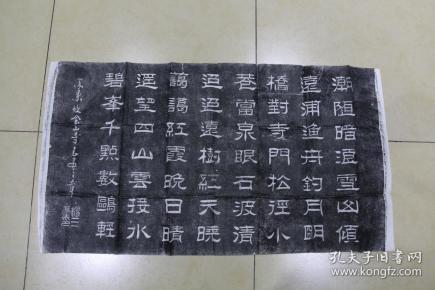 潮隨暗浪雪山傾
遠浦漁舟釣月明
橋對寺門松徑小
巷當泉眼石波清
迢迢遠樹江天曉
藹藹紅霞晚日晴
遙望四山雲接水
碧峯千點數鷗輕
孔夫子旧书网
www.kongfz.com